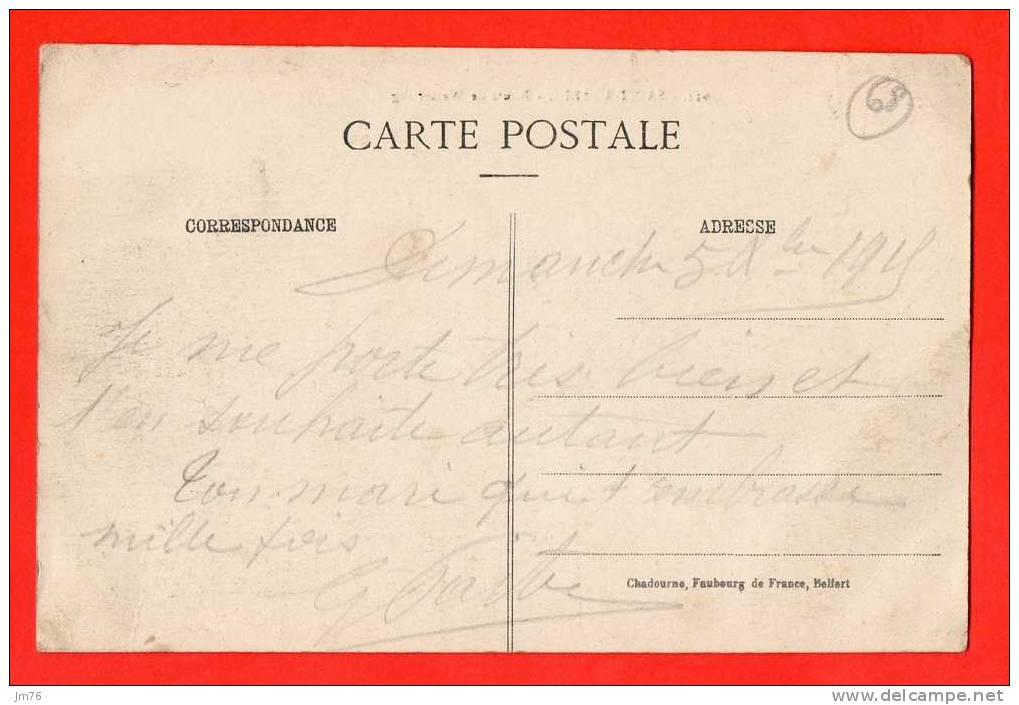 68
CARTE POSTALE
CORRESPONDANCE
ADRESSE
Dimanche 5 Xbre 1915
Je me porte très bien et
t'en souhaite autant
Ton mari qui t'embrasse
mille fois
Chadourne, Faubourg de France, Belfort
jm76
www.delcampe.net